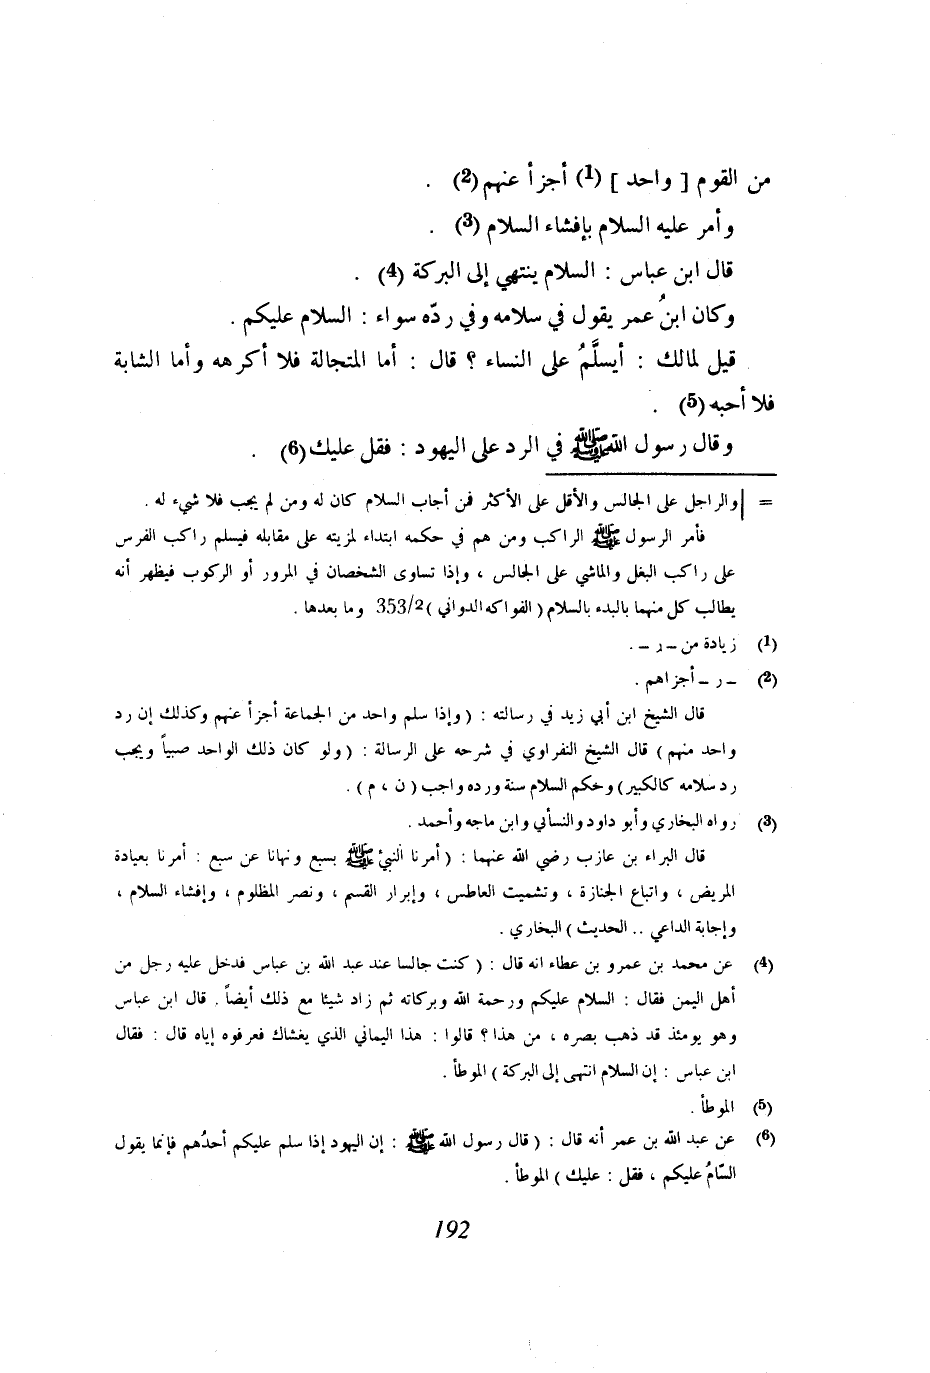 من القوم [ واحد ] (1) أجزأ عنهم(2) .
وأمر عليه السلام بإفشاء السلام (3) .
قال ابن عباس : السلام ينتهي إلى البركة (4) .
وكان ابنُ عمر يقول في سلامه وفي ردّه سواء : السلام عليكم .
قيل لمالك : أيسلَّمُ على النساء ؟ قال : أما المتجالة فلا أكرهه وأما الشابة
فلا أحبه(5) .
وقال رسول الله ﷺ في الرد على اليهود : فقل عليك(6) .
= والراجل على الجالس والأقل على الأكثر فمن أجاب السلام كان له ومن لم يجب فلا شيء له .
فأمر الرسول ﷺ الراكب ومن هم في حكمه ابتداء لمزيته على مقابله فيسلم راكب الفرس
على راكب البغل والماشي على الجالس ، وإذا تساوى الشخصان في المرور أو الركوب فيظهر أنه
يطالب كل منهما بالبدء بالسلام ( الفواكه الدواني ) 353/2 وما بعدها .
(1) زيادة من ـ ر ـ .
(2) ـ ر ـ أجزاهم .
قال الشيخ ابن أبي زيد في رسالته : ( وإذا سلم واحد من الجماعة أجزأ عنهم وكذلك إن رد
واحد منهم ) قال الشيخ النفراوي في شرحه على الرسالة : ( ولو كان ذلك الواحد صبياً ويجب
رد سلامه كالكبير ) وحكم السلام سنة ورده واجب ( ن ، م ) .
(3) رواه البخاري وأبو داود والنسائي وابن ماجه وأحمد .
قال البراء بن عازب رضي الله عنهما : ( أمرنا النبيُ ﷺ بسبع ونهانا عن سبع : أمرنا بعيادة
المريض ، واتباع الجنازة ، وتشميت العاطس ، وإبرار القسم ، ونصر المظلوم ، وإفشاء السلام ،
وإجابة الداعي .. الحديث ) البخاري .
(4) عن محمد بن عمرو بن عطاء انه قال : ( كنت جالسا عند عبد الله بن عباس فدخل عليه رجل من
أهل اليمن فقال : السلام عليكم ورحمة الله وبركاته ثم زاد شيئا مع ذلك أيضاً . قال ابن عباس
وهو يومئذ قد ذهب بصره ، من هذا ؟ قالوا : هذا اليماني الذي يغشاك فعرفوه إياه قال : فقال
ابن عباس : إن السلام انتهى إلى البركة ) الموطأ .
(5) الموطأ .
(6) عن عبد الله بن عمر أنه قال : ( قال رسول الله ﷺ : إن اليهود إذا سلم عليكم أحدُهم فإنما يقول
السّامُ عليكم ، فقل : عليك ) الموطأ .
192